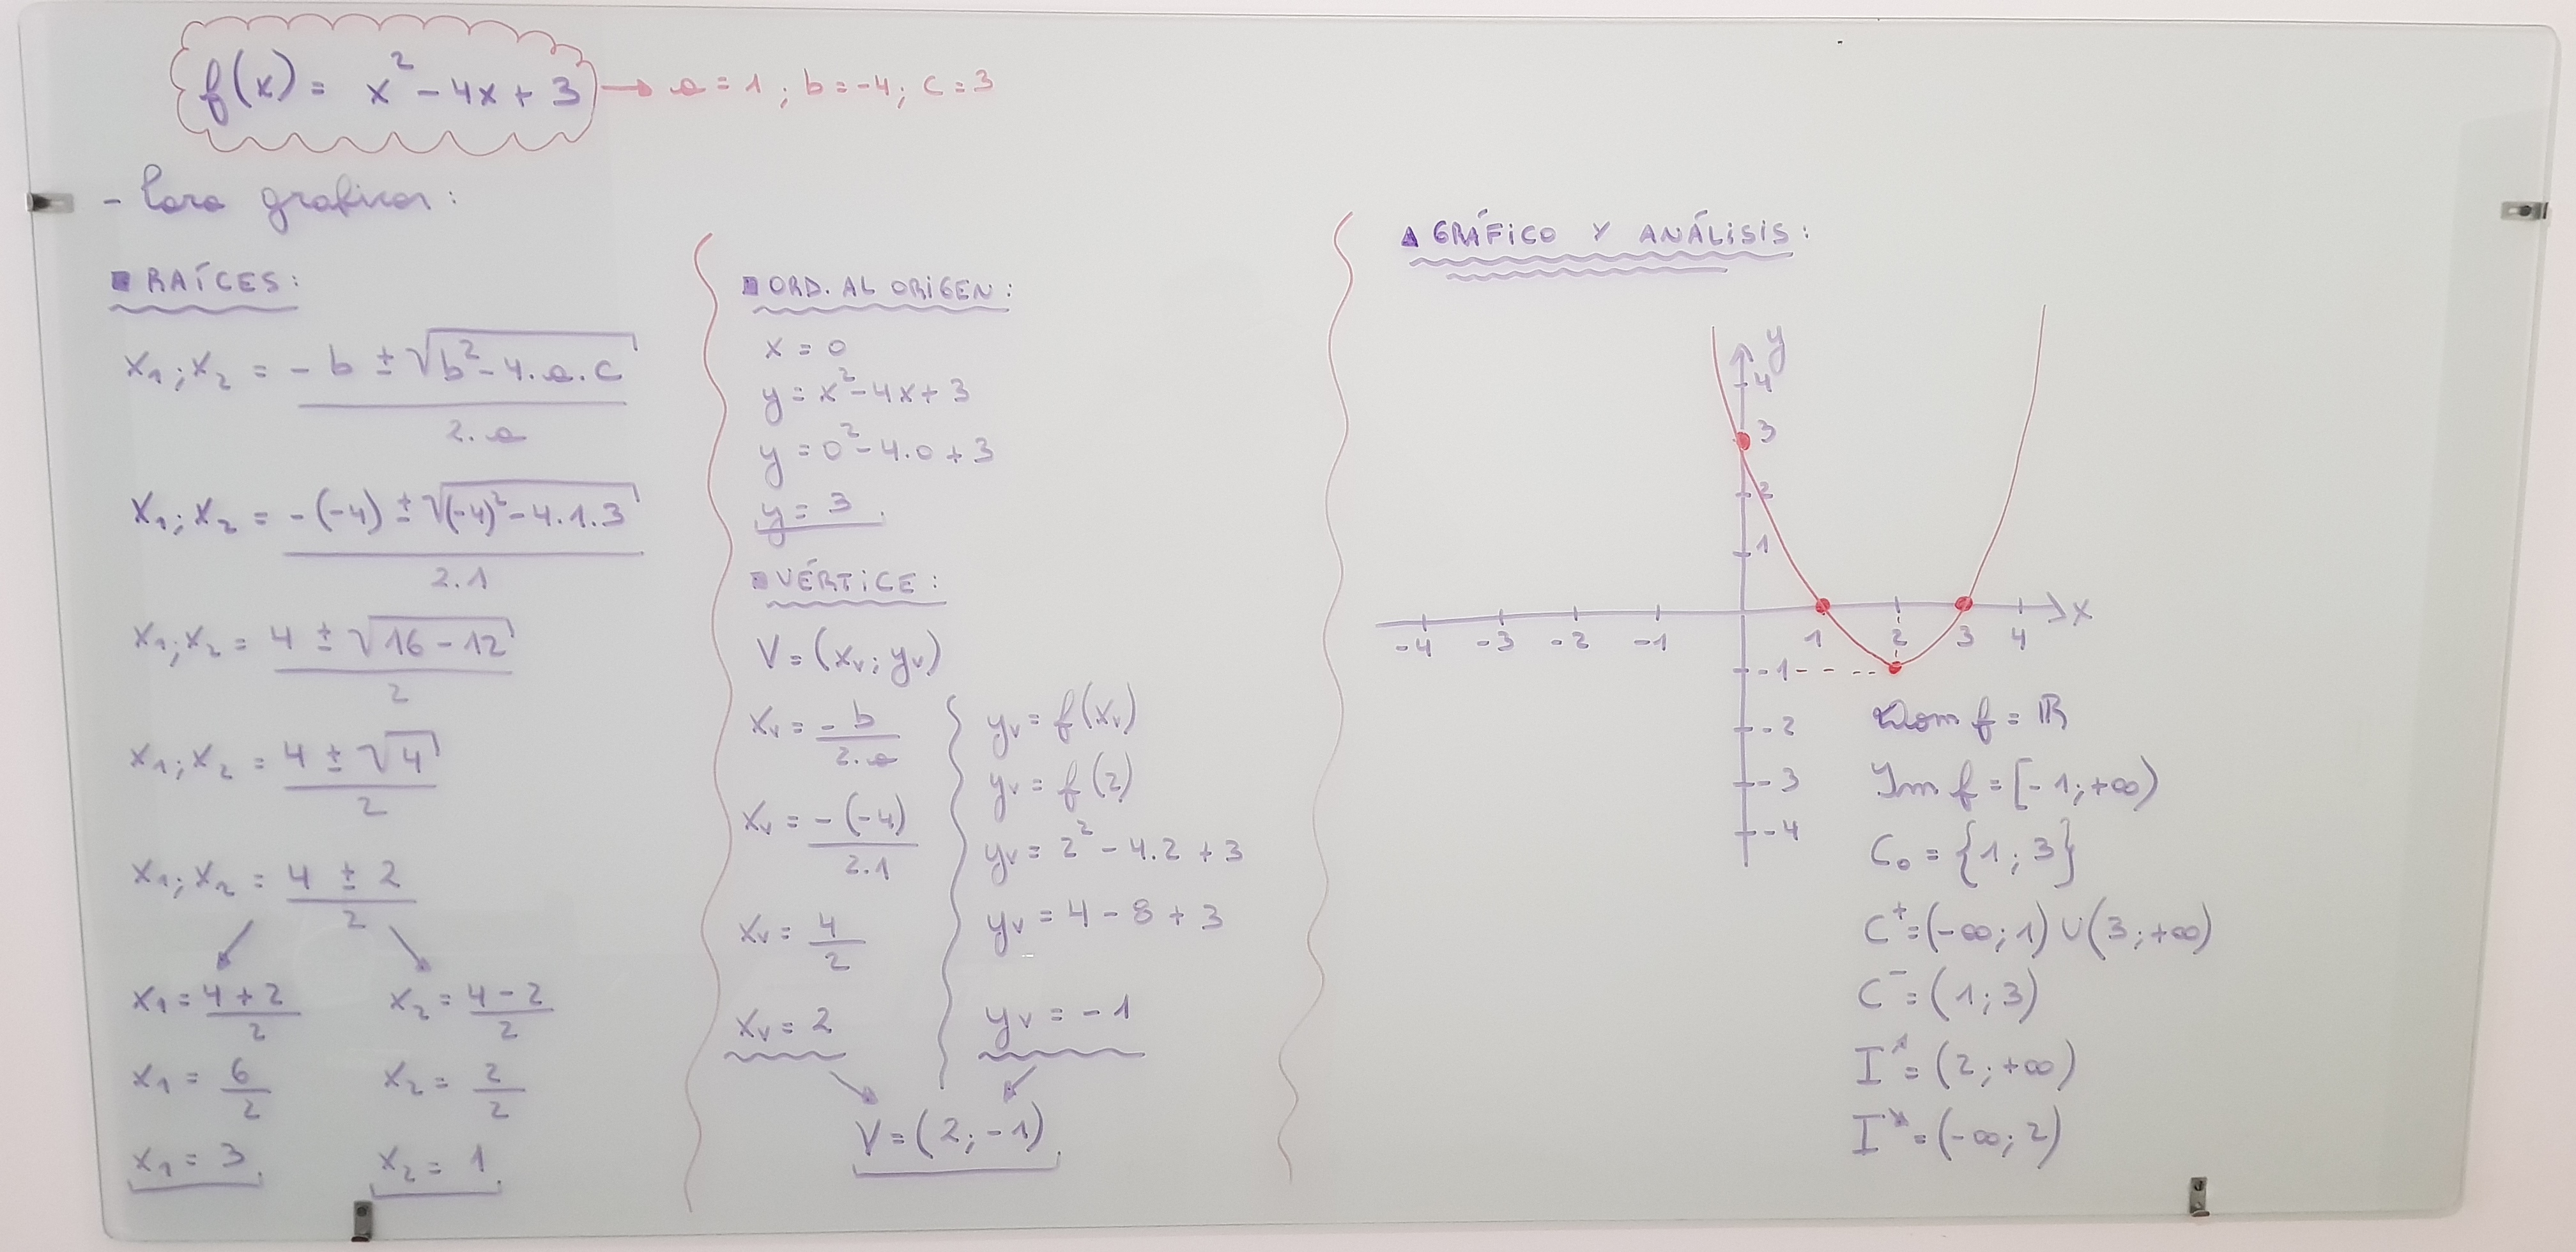 f(x) = x² - 4x + 3 → a = 1 ; b = -4 ; c = 3
- Para graficar:
■ RAÍCES:
x₁ ; x₂ = (- b ± √(b² - 4.a.c)) / (2.a)
x₁ ; x₂ = (- (-4) ± √((-4)² - 4.1.3)) / (2.1)
x₁ ; x₂ = (4 ± √(16 - 12)) / 2
x₁ ; x₂ = (4 ± √4) / 2
x₁ ; x₂ = (4 ± 2) / 2
x₁ = (4 + 2) / 2
x₁ = 6 / 2
x₁ = 3
x₂ = (4 - 2) / 2
x₂ = 2 / 2
x₂ = 1
■ ORD. AL ORIGEN:
x = 0
y = x² - 4x + 3
y = 0² - 4.0 + 3
y = 3
■ VÉRTICE:
V = (xᵥ ; yᵥ)
xᵥ = - b / (2.a)
xᵥ = - (-4) / (2.1)
xᵥ = 4 / 2
xᵥ = 2
yᵥ = f(xᵥ)
yᵥ = f(2)
yᵥ = 2² - 4.2 + 3
yᵥ = 4 - 8 + 3
yᵥ = -1
V = (2 ; -1)
▲ GRÁFICO Y ANÁLISIS:
y
4
3
2
1
-4 -3 -2 -1 1 2 3 4 x
-1
-2
-3
-4
Dom f = ℝ
Im f = [-1 ; +∞)
C₀ = {1 ; 3}
C⁺ = (-∞ ; 1) ∪ (3 ; +∞)
C⁻ = (1 ; 3)
I↗ = (2 ; +∞)
I↘ = (-∞ ; 2)